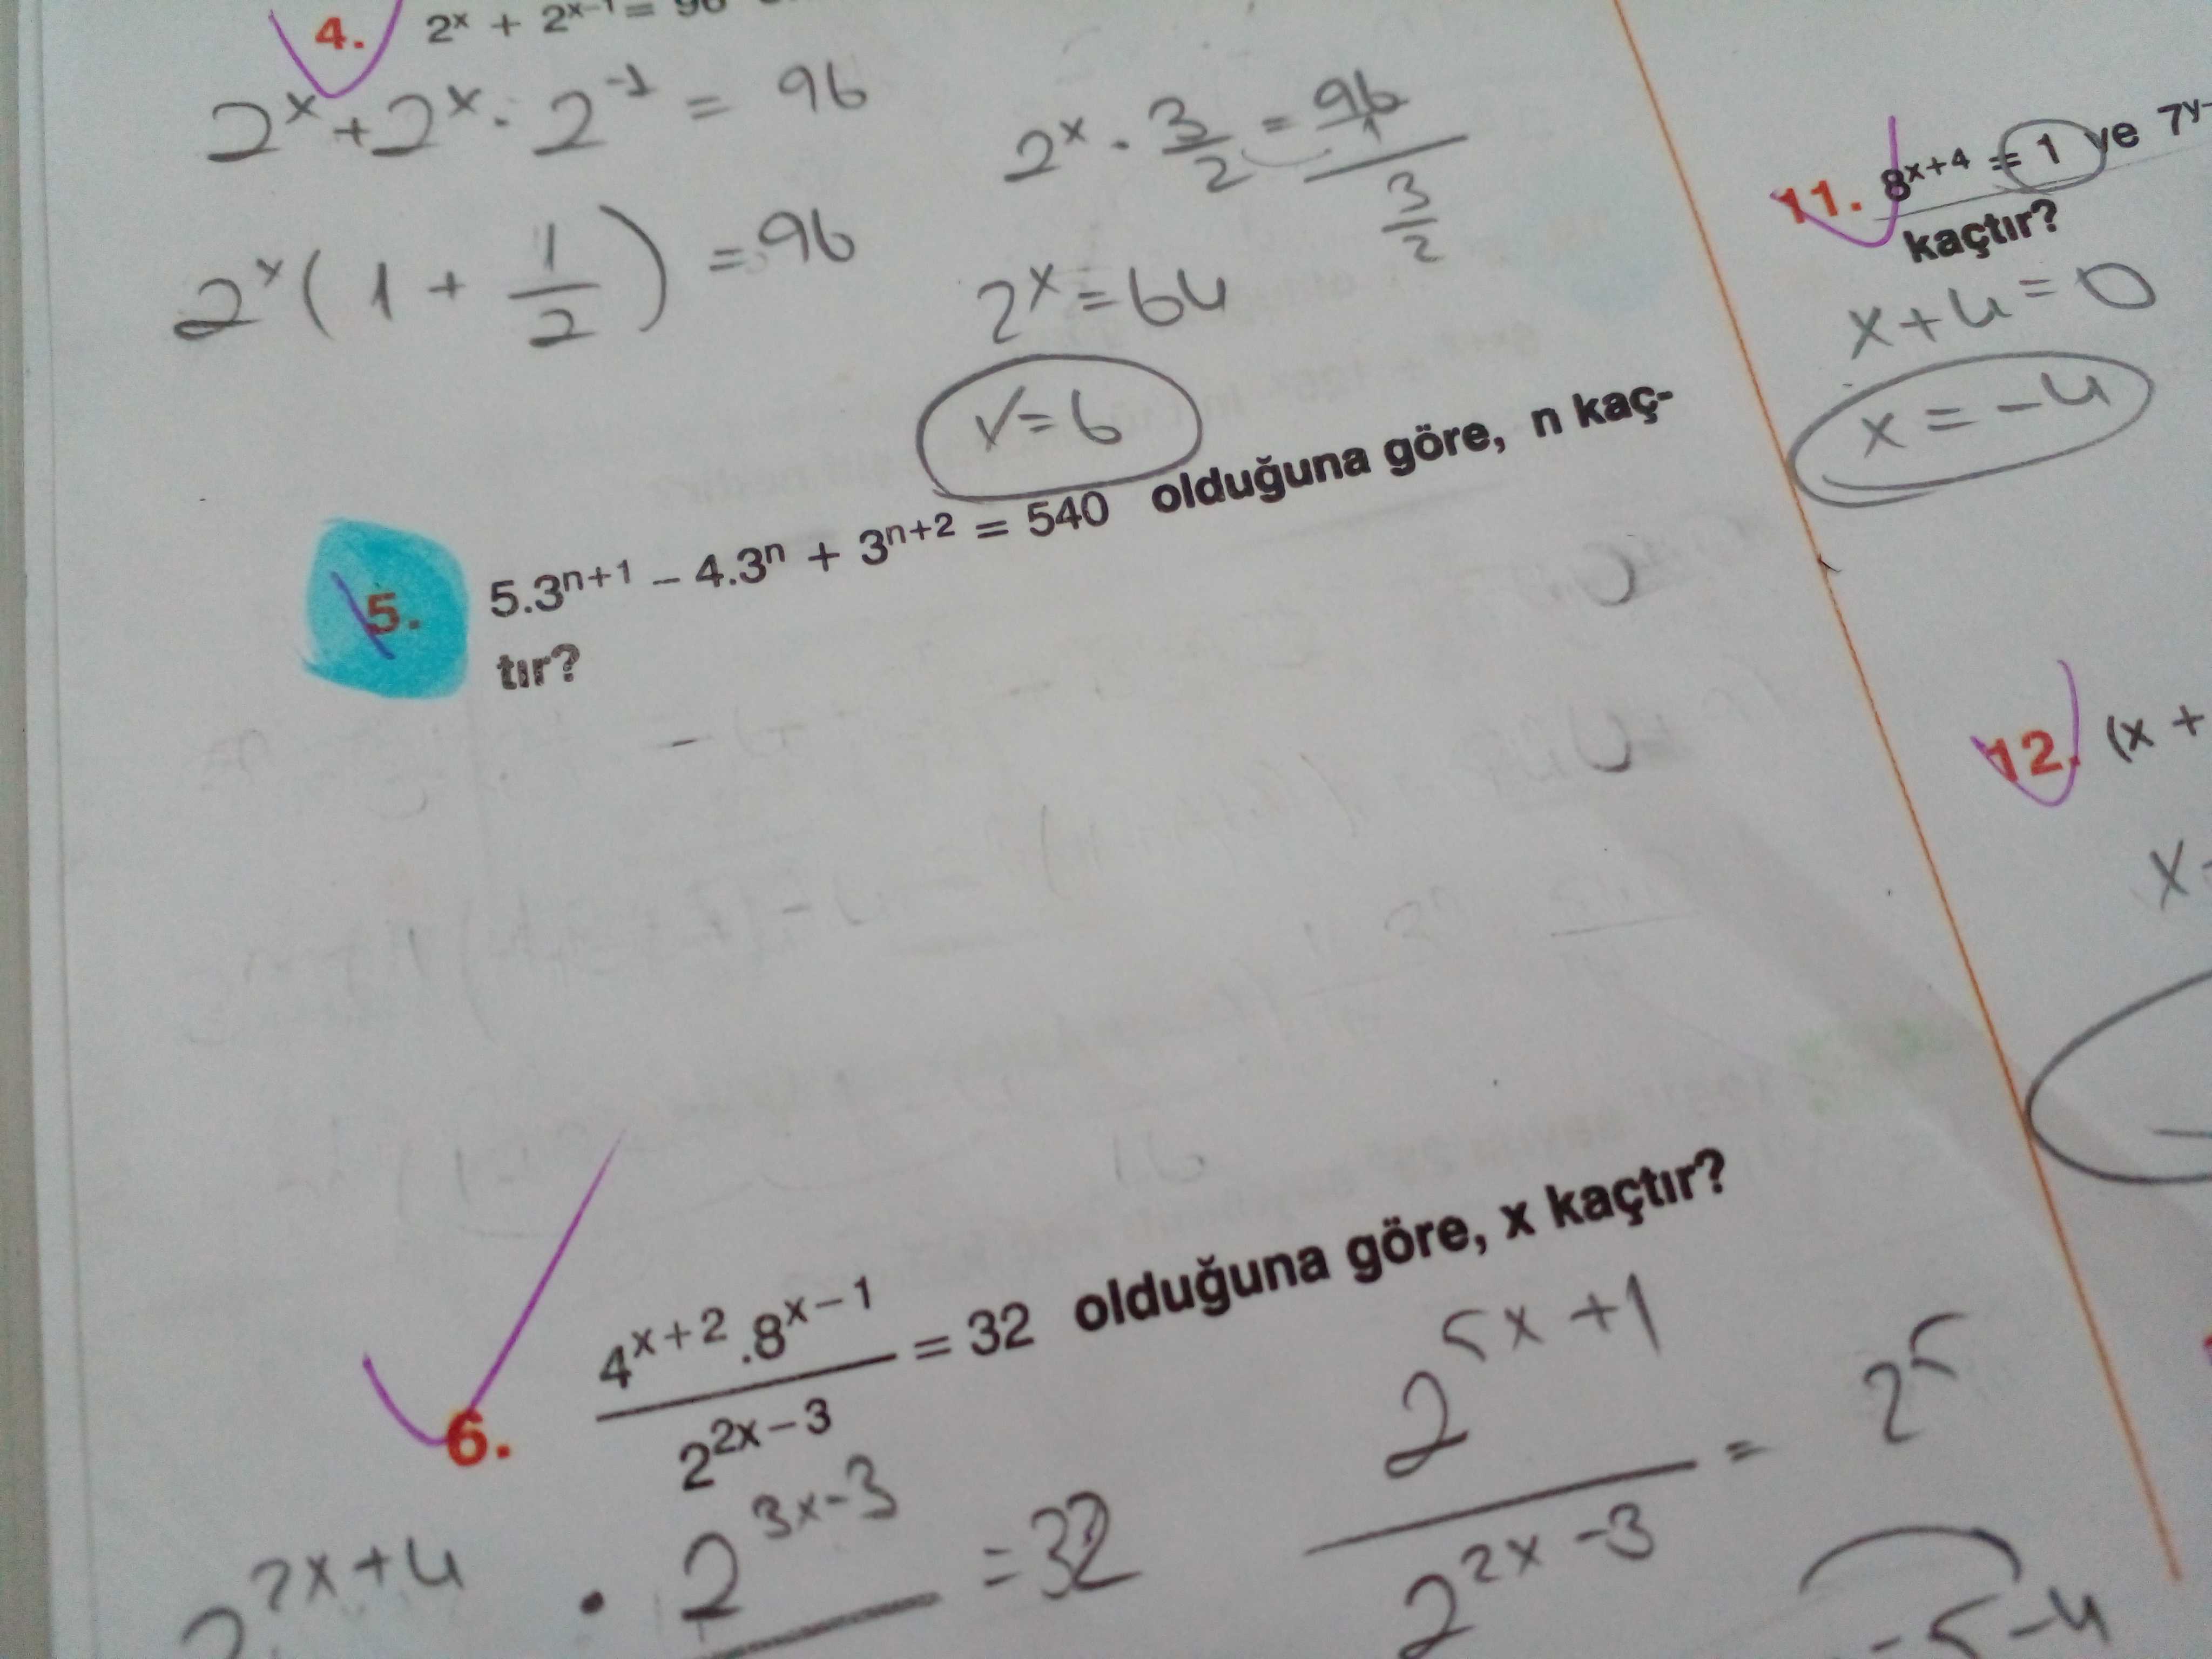 4. 2ˣ + 2ˣ⁻¹ = 96
2ˣ + 2ˣ · 2⁻¹ = 96
2ˣ(1 + 1/2) = 96
2ˣ · 3/2 = 96/1
3/2
2ˣ = 64
x = 6
5. 5.3ⁿ⁺¹ – 4.3ⁿ + 3ⁿ⁺² = 540 olduğuna göre, n kaç-
tır?
6. 4ˣ⁺² .8ˣ⁻¹ / 2²ˣ⁻³ = 32 olduğuna göre, x kaçtır?
2²ˣ⁺⁴ · 2³ˣ⁻³ = 32
2⁵ˣ⁺¹ / 2²ˣ⁻³ = 2⁵
-5-4
11. 8ˣ⁺⁴ = 1 ve 7ʸ⁻
kaçtır?
x+4=0
x = -4
12. (x +
x